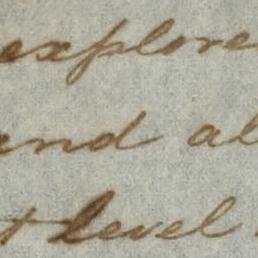 explore
and al
t level